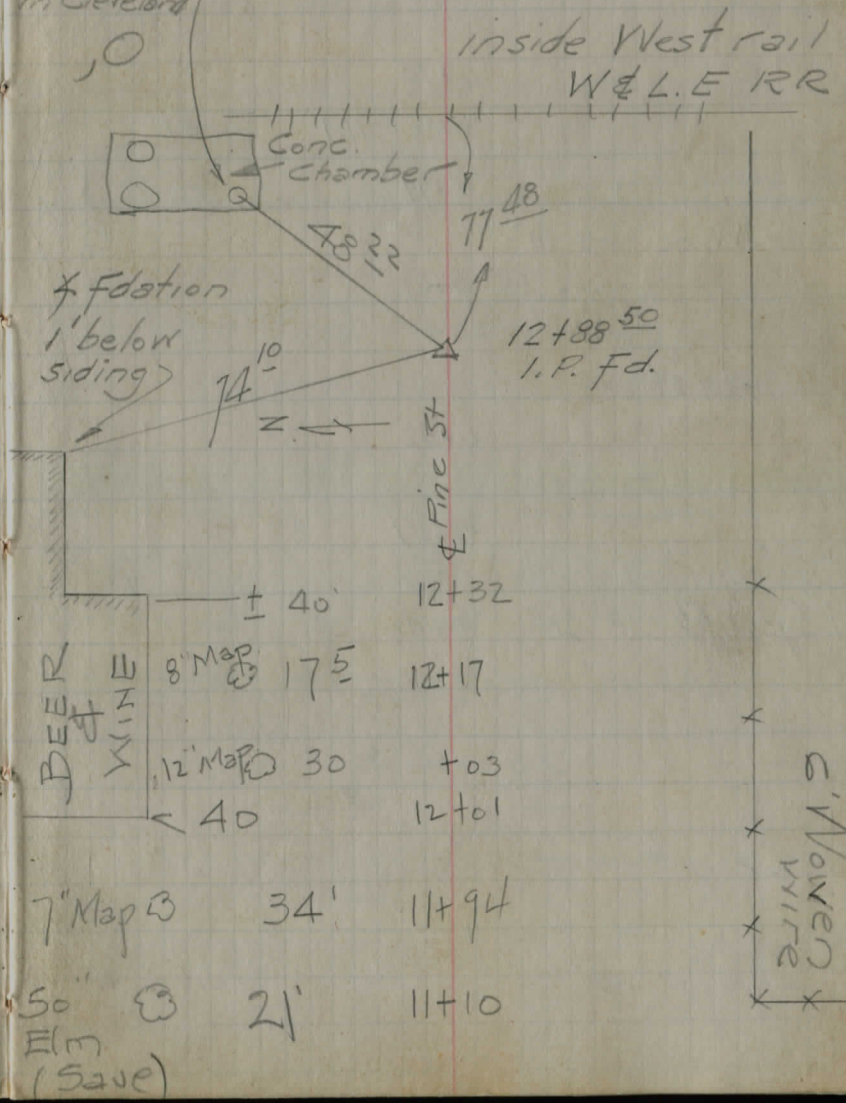 in Cleveland
inside West rail
W & L.E RR
Conc.
Chamber
77 48
48 22
∡ Fdation
1' below
siding
74 10
12+88 50
I.P. Fd.
N
℄ Pine St
± 40' 12+32
BEER
&
WINE
8" Map 17 5 12+17
12" Map 30 +03
40 12+01
7" Map 34' 11+94
50" 21' 11+10
Elm
(Save)
6' Woven
wire